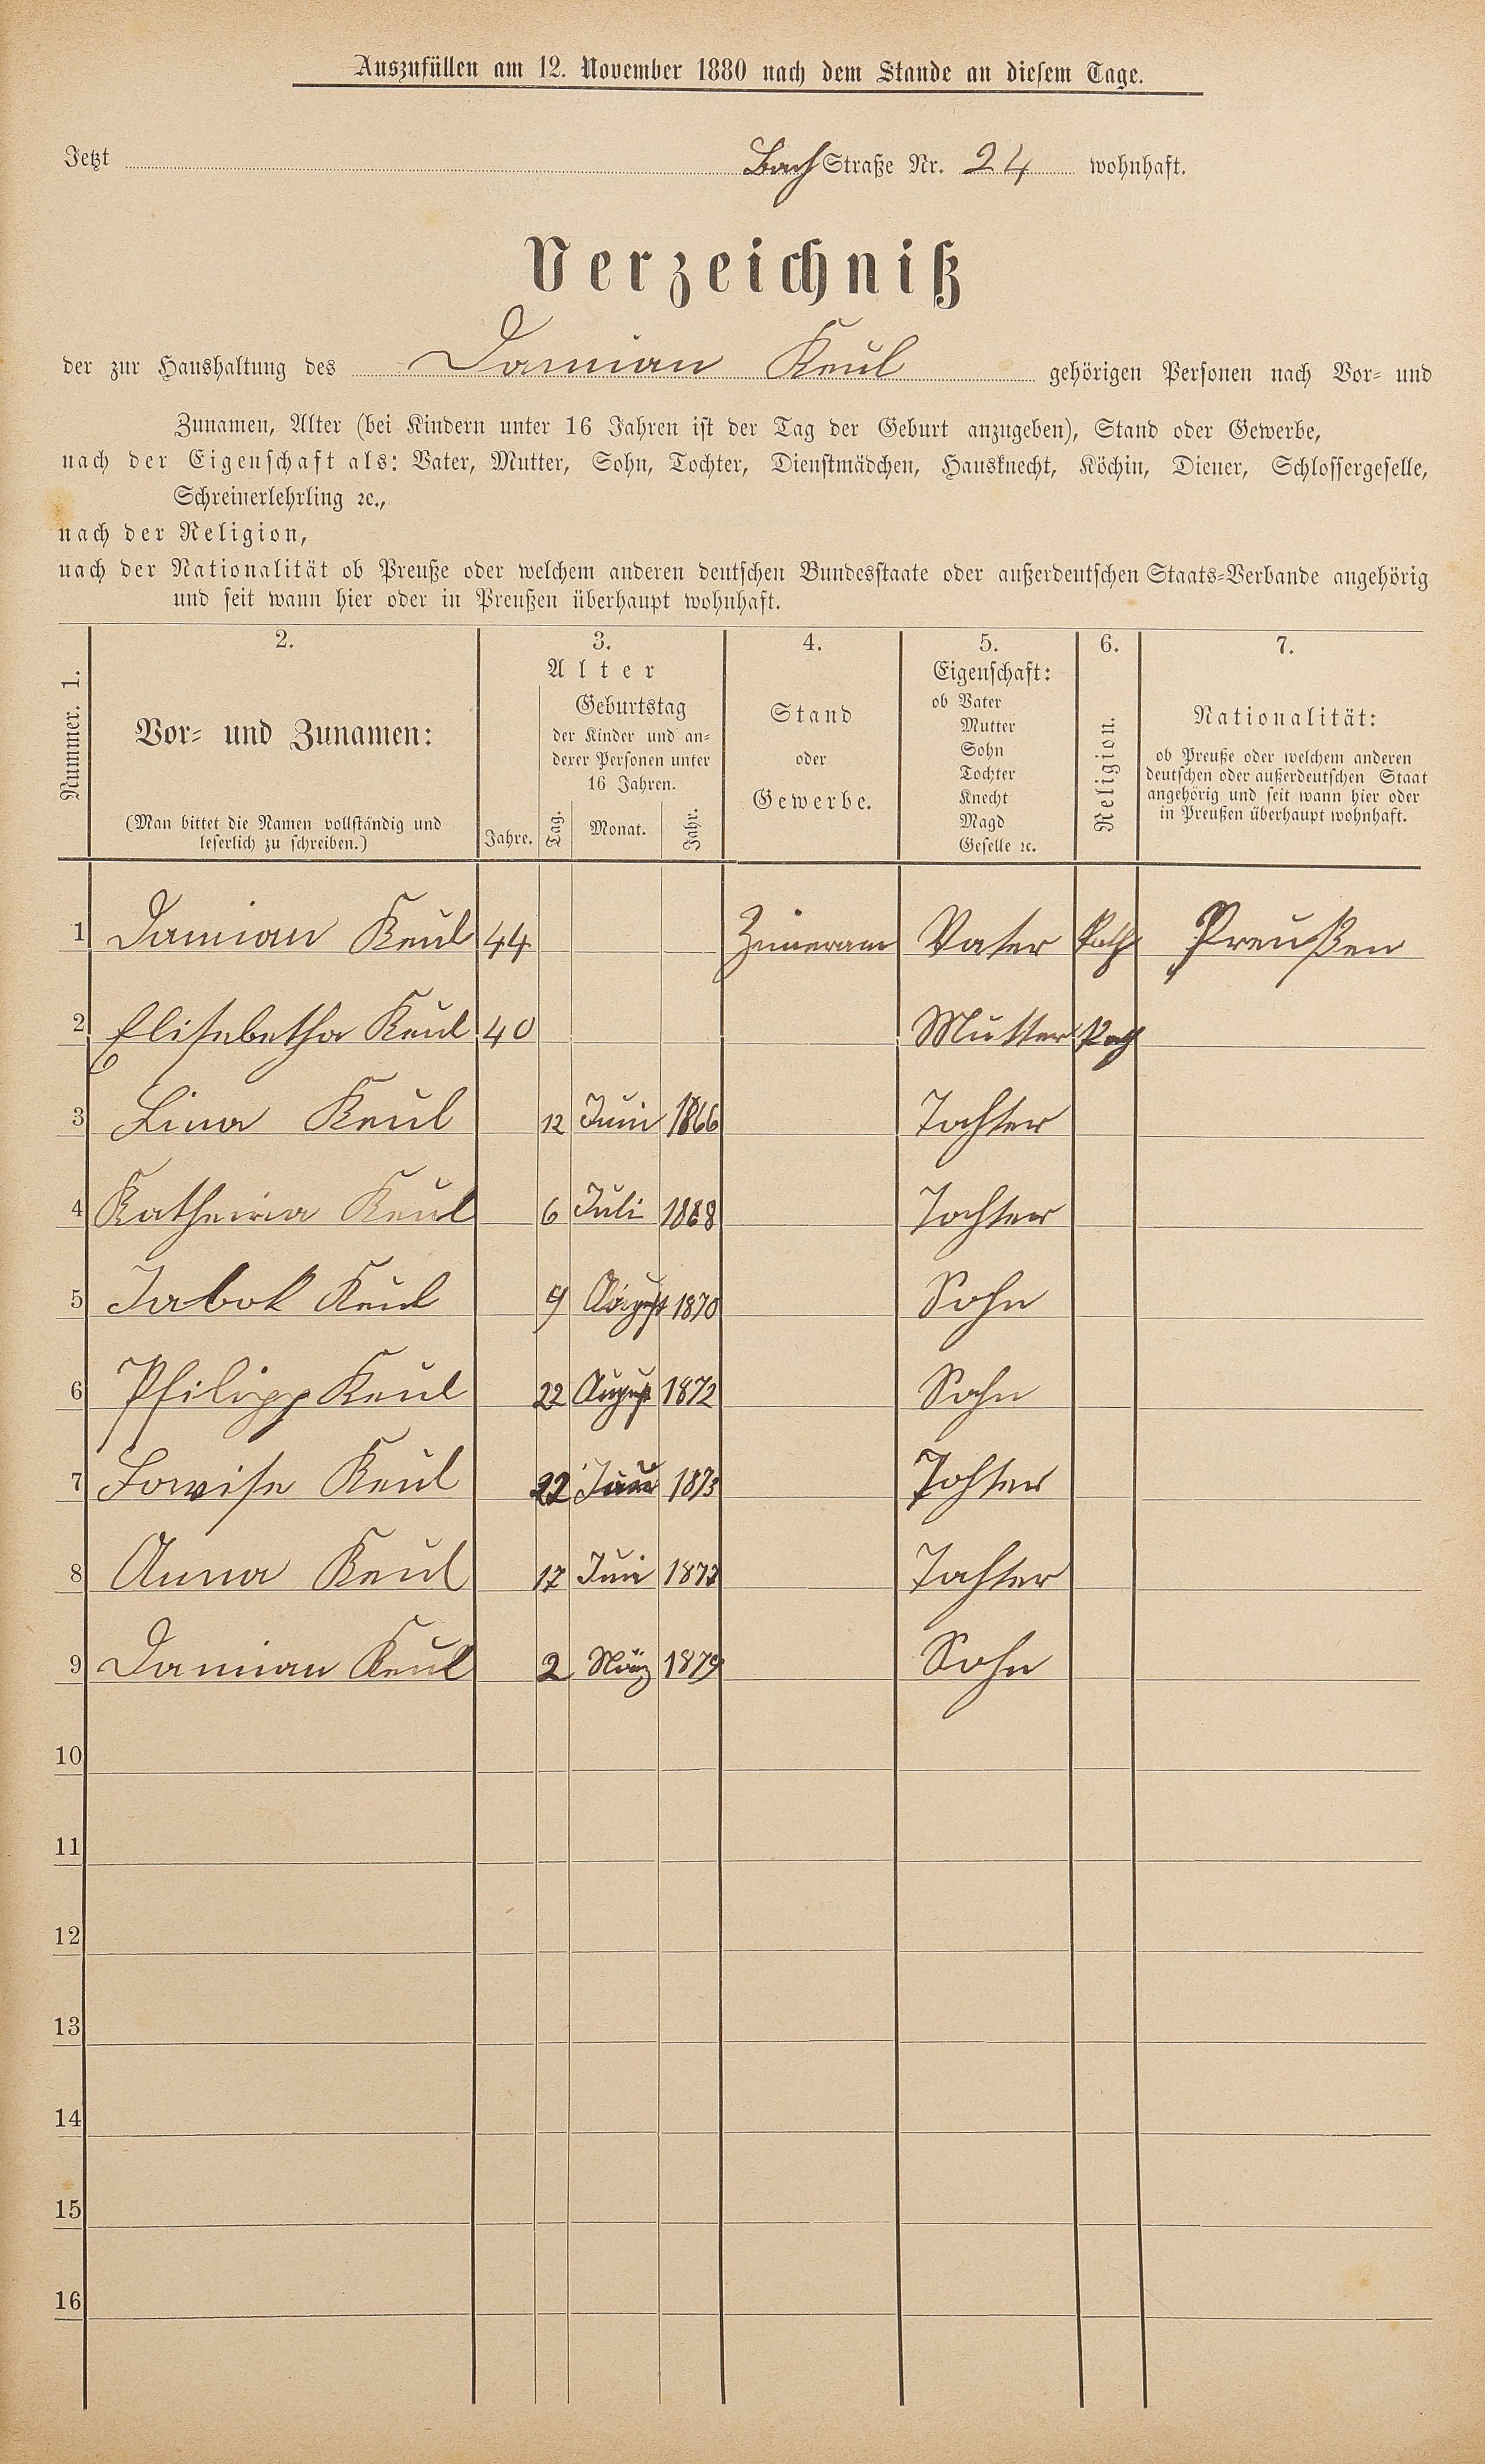 Auszufüllen am 12. November 1880 nach dem Stande an diesem Tage.
Jetzt Bach Straße Nr. 24 wohnhaft.
Verzeichniß
der zur Haushaltung des Damian Keul gehörigen Personen nach Vor- und
Zunamen, Alter (bei Kindern unter 16 Jahren ist der Tag der Geburt anzugeben), Stand oder Gewerbe,
nach der Eigenschaft als: Vater, Mutter, Sohn, Tochter, Dienstmädchen, Hausknecht, Köchin, Diener, Schlossergeselle,
Schreinerlehrling ꝛc.,
nach der Religion,
nach der Nationalität ob Preuße oder welchem anderen deutschen Bundesstaate oder außerdeutschen Staats-Verbande angehörig
und seit wann hier oder in Preußen überhaupt wohnhaft.
Nummer. 1.
2.
Vor- und Zunamen:
(Man bittet die Namen vollständig und
leserlich zu schreiben.)
3.
Alter
Jahre.
Geburtstag
der Kinder und an-
derer Personen unter
16 Jahren.
Tag. Monat. Jahr.
4.
Stand
oder
Gewerbe.
5.
Eigenschaft:
ob Vater
Mutter
Sohn
Tochter
Knecht
Magd
Geselle ꝛc.
6.
Religion.
7.
Nationalität:
ob Preuße oder welchem anderen
deutschen oder außerdeutschen Staat
angehörig und seit wann hier oder
in Preußen überhaupt wohnhaft.
1 Damian Keul 44 Vater Kath Preußen
2 Elisebetha Keul 40 Mutter
3 Lina Keul 12 Juni 1866 Tochter
4 Katheina Keul 6 Juli 1868 Tochter
5 Jabok Keul 9 August 1870 Sohn
6 Philipp Keul 22 August 1872 Sohn
7 Lowise Keul 22 1873 Tohter
8 Anna Keul 17 Juni Tochter
9 Damian Keul 2 März 1879 Sohn
10
11
12
13
14
15
16